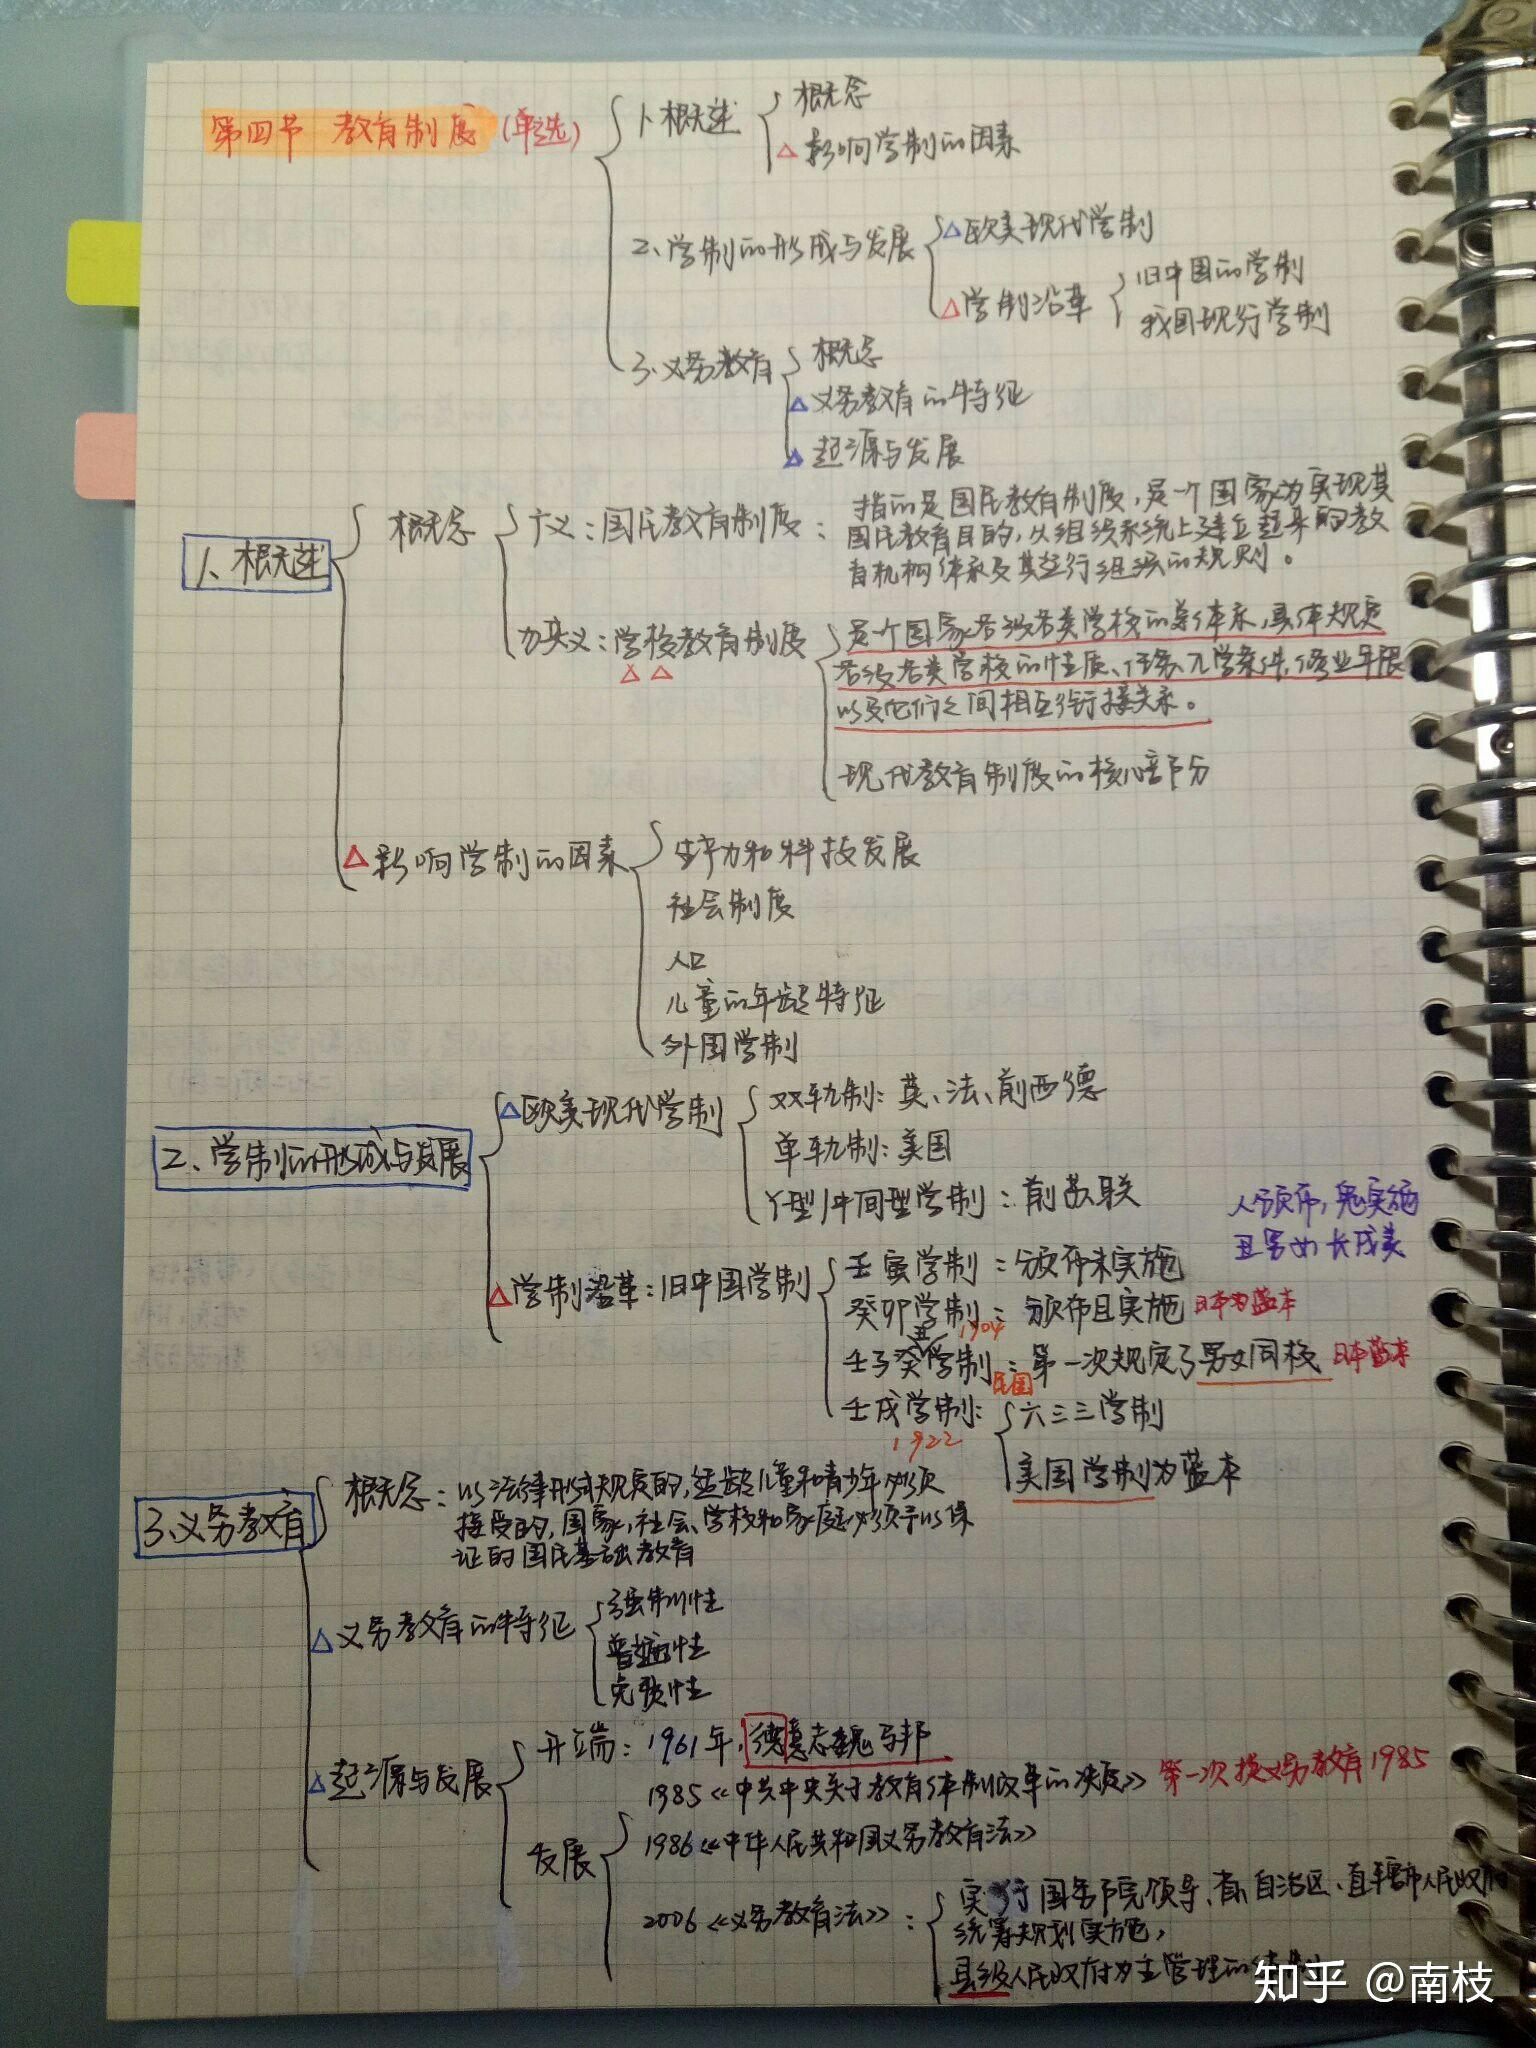 第四节 教育制度 (单选)
1、概述
概念
△影响学制的因素
2、学制的形成与发展
△欧美现代学制
△学制沿革
旧中国的学制
我国现行学制
3、义务教育
概念
△义务教育的特征
△起源与发展
1、概述
概念
广义：国民教育制度：
指的是国民教育制度，是一个国家为实现其
国民教育目的，从组织系统上建立起来的教
育机构体系及其运行组织的规则。
狭义：学校教育制度
△ △
是一个国家各级各类学校的总体系，具体规定
各级各类学校的性质、任务、入学条件，修业年限
以及它们之间相互衔接关系。
现代教育制度的核心部分
△影响学制的因素
生产力和科技发展
社会制度
人口
儿童的年龄特征
外国学制
2、学制的形成与发展
△欧美现代学制
双轨制：英、法、前西德
单轨制：美国
Y型/中间型学制：前苏联
人颁布，鬼实施
丑男女 长成美
△学制沿革：旧中国学制
壬寅学制：颁布未实施
癸卯学制：颁布且实施 日本为蓝本
1904
壬子癸丑学制：第一次规定了男女同校 日本蓝本
民国
壬戌学制：
1922
六三三学制
美国学制为蓝本
3、义务教育
概念：以法律形式规定的，适龄儿童和青少年必须
接受的，国家，社会、学校和家庭必须予以保
证的国民基础教育
△义务教育的特征
强制性
普遍性
免费性
△起源与发展
开端：1961年，德意志魏马邦
发展
1985《中共中央关于教育体制改革的决定》 第一次提义务教育1985
1986《中华人民共和国义务教育法》
2006《义务教育法》：
实行国务院领导、省、自治区、直辖市人民政府
统筹规划实施，
县级人民政府为主管理的体制
知乎 @南枝